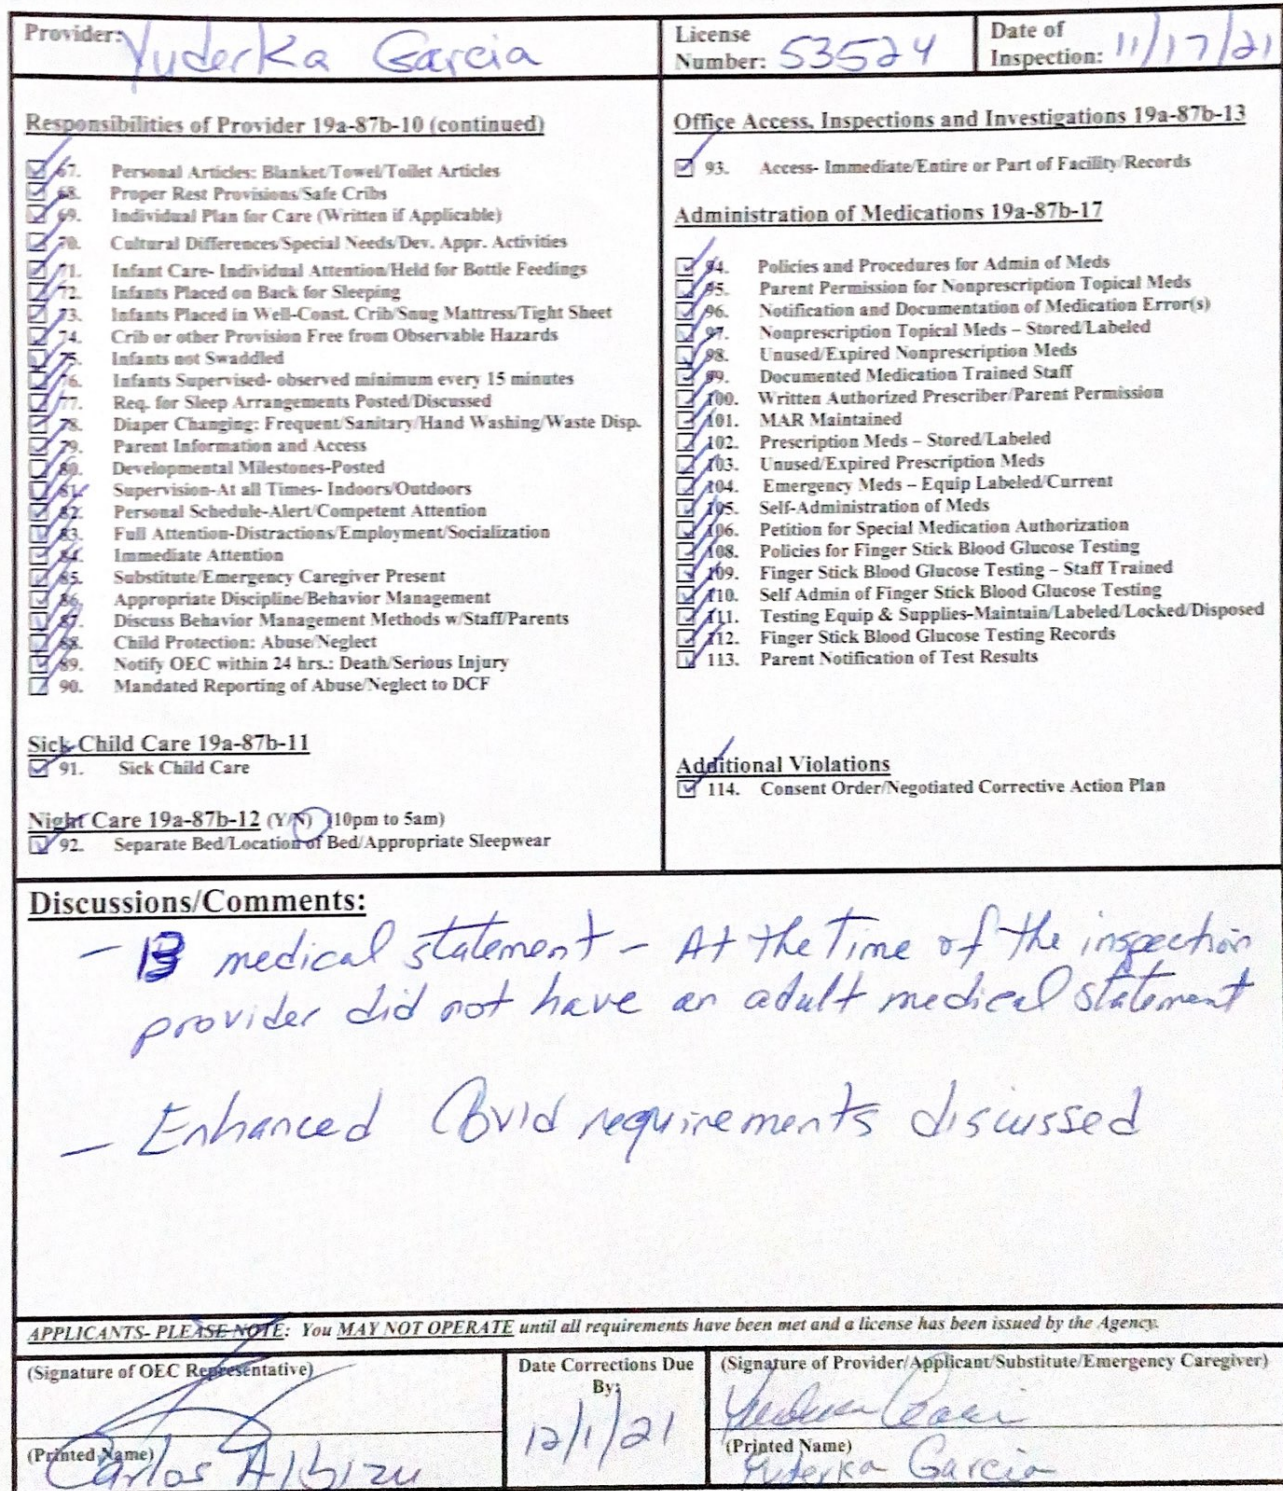 Provider: Yuderka Garcia
License Number: 53524
Date of Inspection: 11/17/21
Responsibilities of Provider 19a-87b-10 (continued)
67. Personal Articles: Blanket/Towel/Toilet Articles
68. Proper Rest Provisions/Safe Cribs
69. Individual Plan for Care (Written if Applicable)
70. Cultural Differences/Special Needs/Dev. Appr. Activities
71. Infant Care- Individual Attention/Held for Bottle Feedings
72. Infants Placed on Back for Sleeping
73. Infants Placed in Well-Const. Crib/Snug Mattress/Tight Sheet
74. Crib or other Provision Free from Observable Hazards
75. Infants not Swaddled
76. Infants Supervised- observed minimum every 15 minutes
77. Req. for Sleep Arrangements Posted/Discussed
78. Diaper Changing: Frequent/Sanitary/Hand Washing/Waste Disp.
79. Parent Information and Access
80. Developmental Milestones-Posted
81. Supervision-At all Times- Indoors/Outdoors
82. Personal Schedule-Alert/Competent Attention
83. Full Attention-Distractions/Employment/Socialization
84. Immediate Attention
85. Substitute/Emergency Caregiver Present
86. Appropriate Discipline/Behavior Management
87. Discuss Behavior Management Methods w/Staff/Parents
88. Child Protection: Abuse/Neglect
89. Notify OEC within 24 hrs.: Death/Serious Injury
90. Mandated Reporting of Abuse/Neglect to DCF
Sick Child Care 19a-87b-11
91. Sick Child Care
Night Care 19a-87b-12 (Y/N) (10pm to 5am)
92. Separate Bed/Location of Bed/Appropriate Sleepwear
Office Access, Inspections and Investigations 19a-87b-13
93. Access- Immediate/Entire or Part of Facility/Records
Administration of Medications 19a-87b-17
94. Policies and Procedures for Admin of Meds
95. Parent Permission for Nonprescription Topical Meds
96. Notification and Documentation of Medication Error(s)
97. Nonprescription Topical Meds – Stored/Labeled
98. Unused/Expired Nonprescription Meds
99. Documented Medication Trained Staff
100. Written Authorized Prescriber/Parent Permission
101. MAR Maintained
102. Prescription Meds – Stored/Labeled
103. Unused/Expired Prescription Meds
104. Emergency Meds – Equip Labeled/Current
105. Self-Administration of Meds
106. Petition for Special Medication Authorization
108. Policies for Finger Stick Blood Glucose Testing
109. Finger Stick Blood Glucose Testing – Staff Trained
110. Self Admin of Finger Stick Blood Glucose Testing
111. Testing Equip & Supplies-Maintain/Labeled/Locked/Disposed
112. Finger Stick Blood Glucose Testing Records
113. Parent Notification of Test Results
Additional Violations
114. Consent Order/Negotiated Corrective Action Plan
Discussions/Comments:
- 13 medical statement - At the time of the inspection
provider did not have an adult medical statement
- Enhanced Covid requirements discussed
APPLICANTS- PLEASE NOTE: You MAY NOT OPERATE until all requirements have been met and a license has been issued by the Agency.
(Signature of OEC Representative)
(Printed Name)
Carlos Albizu
Date Corrections Due
By:
12/1/21
(Signature of Provider/Applicant/Substitute/Emergency Caregiver)
(Printed Name)
Yuderka Garcia